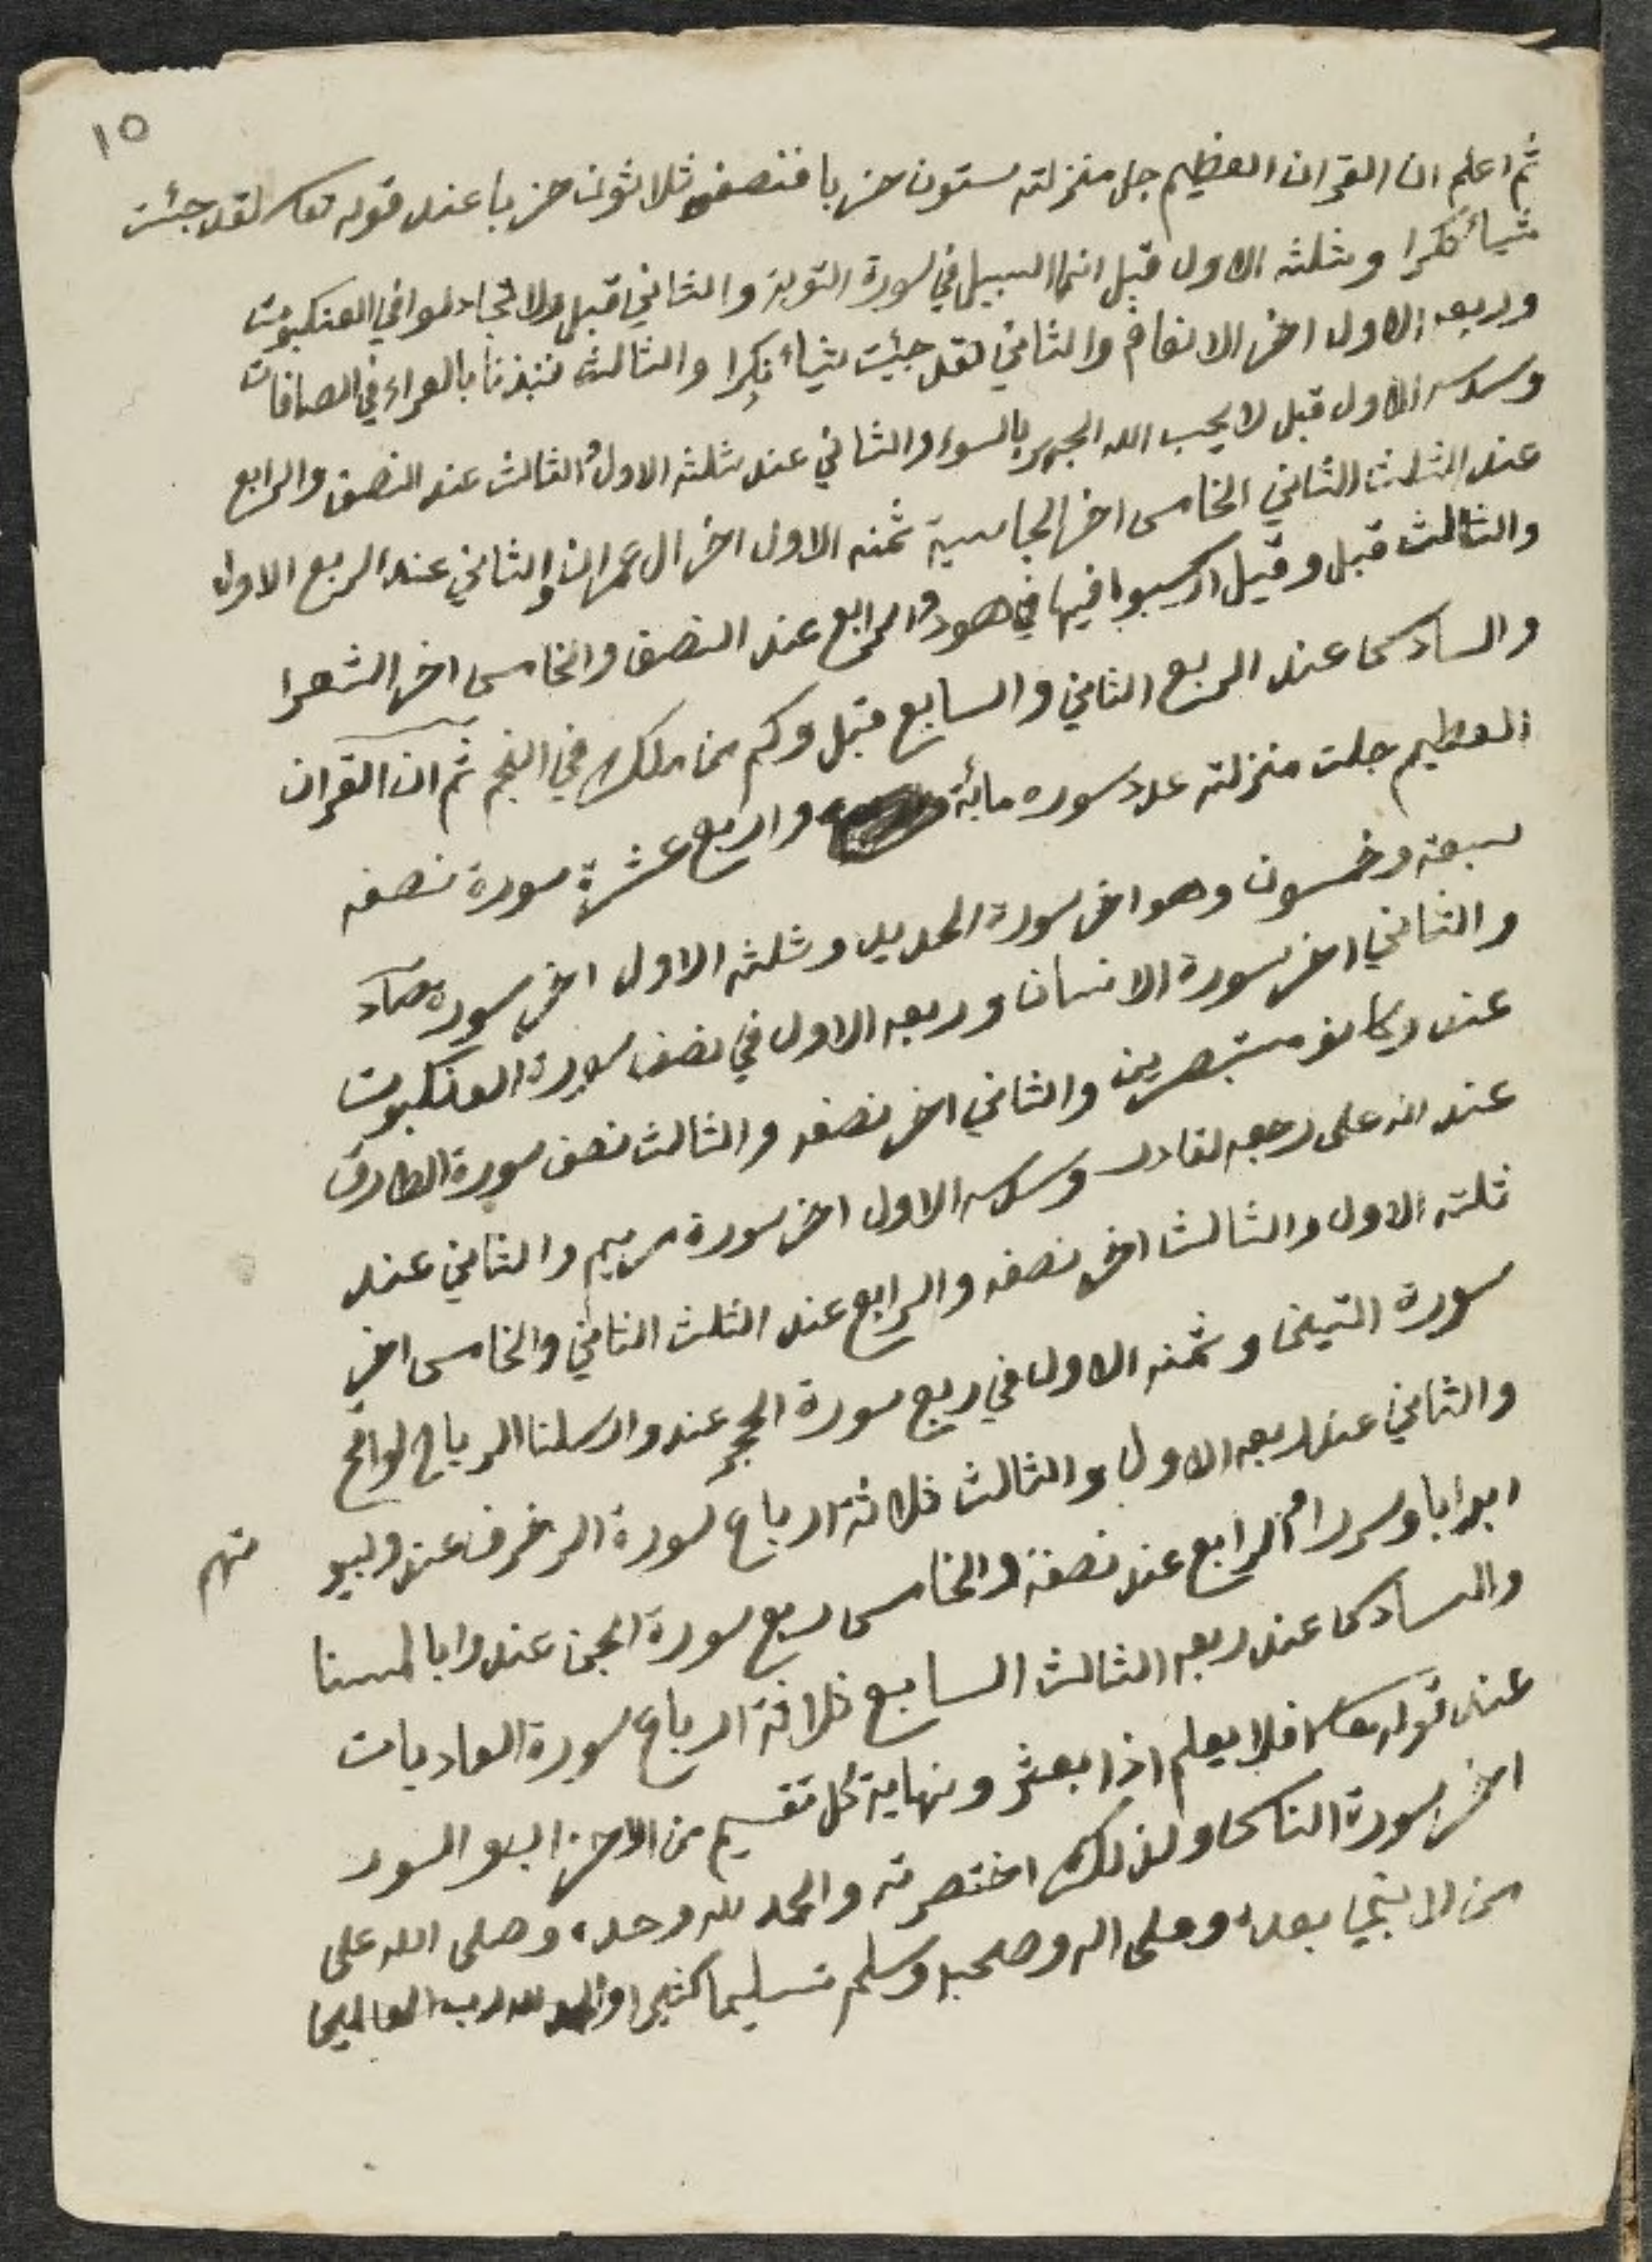 ١٥
ثم اعلم ان القران العظيم جل منزلته ستون حزبا فنصفه ثلاثون حزبا عند قوله تعا لقد جئت
شيأ نكرا وثلثه الاول قبل انما السبيل في سورة التوبة والثاني قبل ولا تجادلوا في العنكبوت
وربعه الاول اخر الانعام والثاني لقد جيئت شيأ نكرا والثالث فنبذنا بالعراء في الصافات
وسدسه الاول قبل لا يحب الله الجهر بالسوء والثاني عند ثلثه الاول والثالث عند النصف والرابع
عند الثلث الثاني الخامس اخر الجاسية ثمنه الاول اخر ال عمران والثاني عند الربع الاول
والثالث قبل وقيل اركبوا فيها في هود والرابع عند النصف والخامس اخر الشعرا
والسادس عند الربع الثاني والسابع قبل وكم من ملك في النجم ثم ان القران
العظيم جلت منزلته عدد سوره مائة واربع عشرة سورة نصفه
سبعة وخمسون وهو اخر سورة الحديد وثلثه الاول اخر سورة صاد
والثاني اخر سورة الانسان وربعه الاول في نصف سورة العنكبوت
عند وكانو مستبصرين والثاني اخر نصفه والثالث نصف سورة الطارق
عند انه على رجعه لقادر وسدسه الاول اخر سورة مريم والثاني عند
ثلثه الاول والثالث اخر نصفه والرابع عند الثلث الثاني والخامس اخر
سورة التين وثمنه الاول في ربع سورة الحجر عند وارسلنا الرياح لواقح
والثاني عند ربعه الاول والثالث ثلاثة ارباع سورة الزخرف عند ولبيو تهم
ابوابا وسررا والرابع عند نصفة والخامس ربع سورة الجن عند وانا لمسنا
والسادس عند ربعه الثالث السابع ثلاثة ارباع سورة العاديات
عند قوله تعا افلا يعلم اذا بعثر ونهاية كل تقسيم من الاحزاب والسور
اخر سورة الناس ولذلك اختصرته والحمد لله وحده وصلى الله على
من لا نبي بعده وعلى اله وصحبه وسلم تسليما كثيرا والحمد لله رب العالمين